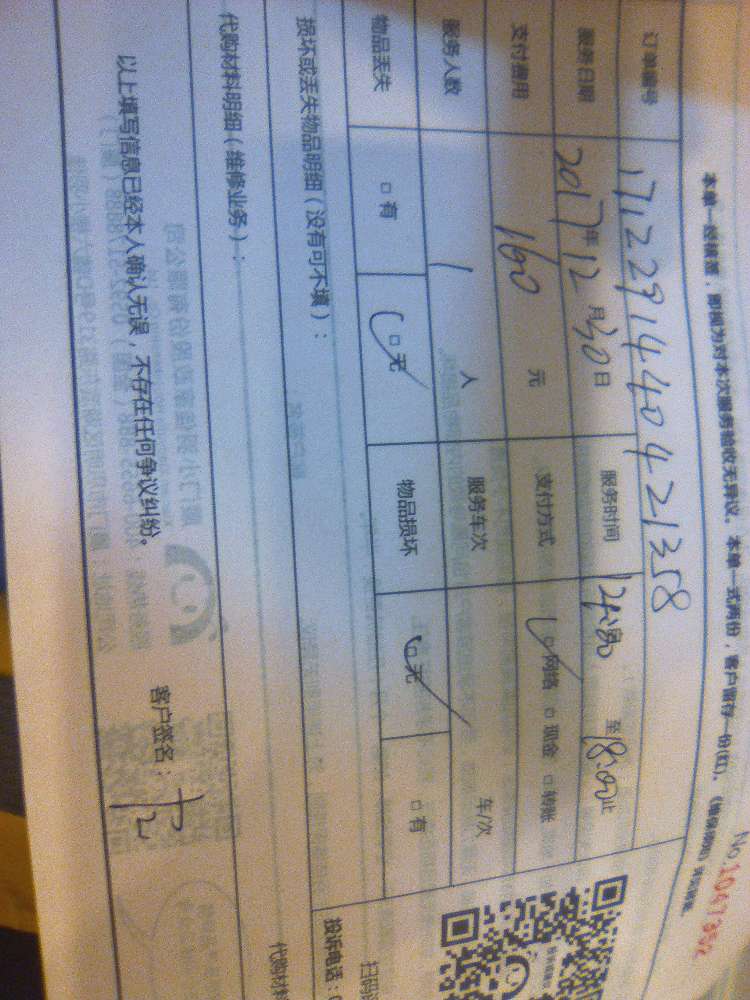 No.10477652
本单一经填签，即视为对本次服务验收无异议。本单一式两份，客户留存一份(红)。
订单编号 1712291440421358
服务日期 2017年12月30日 服务时间 至18:00止
支付费用 160元 支付方式 □网络 □现金 □转账
服务人数 1人 服务车次 车/次
物品丢失 □有 □无 物品损坏 □无 □有
损坏或丢失物品明细（没有可不填）：
代购材料明细（维修业务）：
以上填写信息已经本人确认无误，不存在任何争议纠纷。
客户签名：
扫码
投诉电话：
代购材料